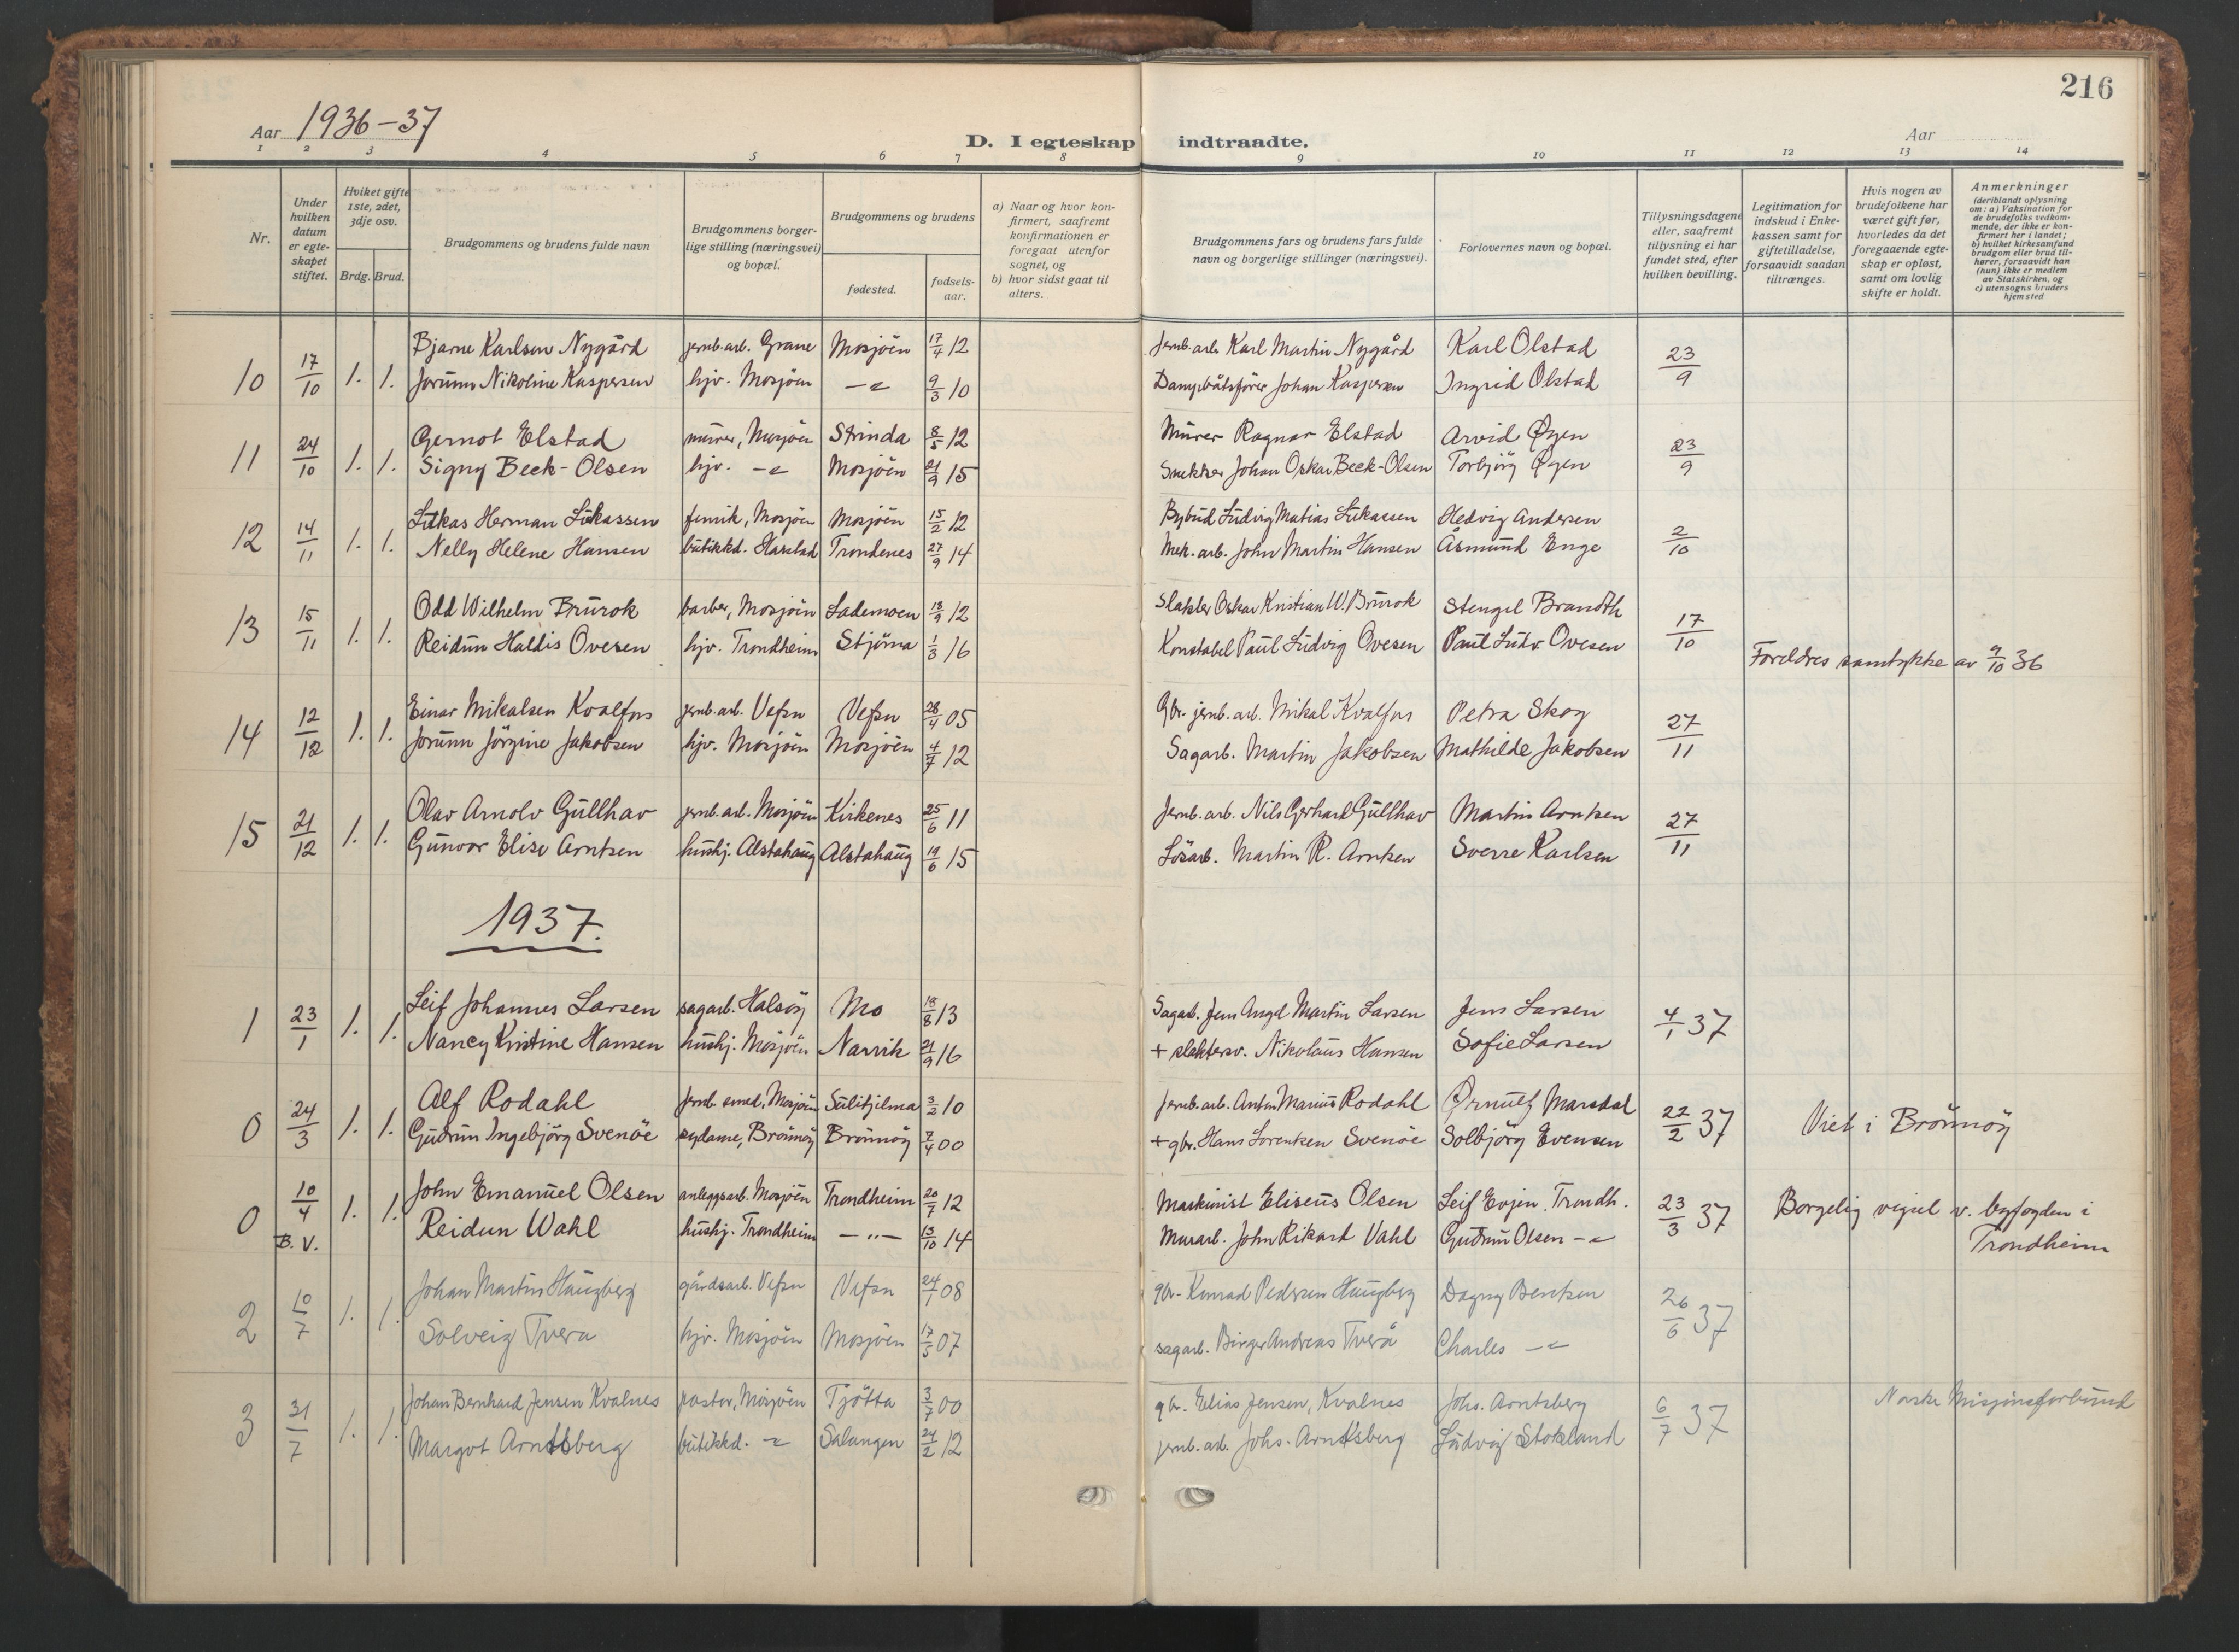 216
Aar 1936-37
D. I egteskap indtraadte.
Aar
1 2 3 4 5 6 7 8 9 10 11 12 13 14
Nr.
Under hvilken datum er egteskapet stiftet.
Hviket gifte 1ste, 2det, 3dje osv.
Brdg. Brud.
Brudgommens og brudens fulde navn
Brudgommens borgerlige stilling (næringsvei) og bopæl.
Brudgommens og brudens
fødested.
fødselsaar.
a) Naar og hvor konfirmert, saafremt konfirmationen er foregaat utenfor sognet, og
b) hvor sidst gaat til alters.
Brudgommens fars og brudens fars fulde navn og borgerlige stillinger (næringsvei).
Forlovernes navn og bopæl.
Tillysningsdagene eller, saafremt tillysning ei har fundet sted, efter hvilken bevilling.
Legitimation for indskud i Enkekassen samt for giftetilladelse, forsaavidt saadan tiltrænges.
Hvis nogen av brudefolkene har været gift før, hvorledes da det foregaaende egteskap er opløst, samt om lovlig skifte er holdt.
Anmerkninger (deriblandt oplysning om: a) Vaksination for de brudefolks vedkommende, der ikke er konfirmert her i landet; b) hvilket kirkesamfund brudgom eller brud tilhører, forsaavidt han (hun) ikke er medlem av Statskirken, og c) utensogns bruders hjemsted
10 17/10 1. 1. Bjarne Karlsen Nygård jernb.arb. Grane Mosjöen 17/4 12 Jernb.arb. Karl Martin Nygård Karl Olstad 23/9
Jorunn Nikoline Kaspersen hjv. Mosjöen -"- 9/3 10 Dampbåtsförer Johan Kaspersen Ingrid Olstad
11 24/10 1. 1. Gernot Elstad murer, Mosjöen Strinda 8/5 12 Murer Ragnar Elstad Arvid Øyen 23/9
Signy Beck-Olsen hjv. -"- Mosjöen 21/9 15 Snekker Johan Oskar Beck-Olsen Torbjörg Øyen
12 14/11 1. 1. Lukas Herman Lukassen fenrik, Mosjöen Mosjöen 15/2 12 Bybud Ludvig Matias Lukassen Hedvig Andersen 2/10
Nelly Helene Hansen butikkd. Harstad Trondenes 27/9 14 Mek. arb. John Martin Hansen Åsmund Enge
13 15/11 1. 1. Odd Wilhelm Brurok barber, Mosjöen Lademoen 13/9 12 Slakter Oskar Kristian W. Brurok Stengel Brandth 17/10
Reidun Haldis Ovesen hjv. Trondheim Stjörna 1/3 16 Konstabel Paul Ludvig Ovesen Paul Ludv. Ovesen Foreldres samtykke av 9/10 36
14 12/12 1. 1. Einar Mikalsen Kvalfors jernb.arb. Vefsn Vefsn 28/4 05 Gbr. jernb. arb. Mikal Kvalfors Petra Skog 27/11
Jorunn Jörgine Jakobsen hjv. Mosjöen Mosjöen 4/7 12 Sagarb. Martin Jakobsen Mathilde Jakobsen
15 21/12 1. 1. Olav Arnolv Gullhav jernb.arb. Mosjöen Kirkenes 25/6 11 Jernb. arb. Nils Gerhard Gullhav Martin Arntsen 27/11
Gunvor Elise Arntsen hushj. Alstahaug Alstahaug 19/6 15 Lösarb. Martin R. Arntsen Sverre Karlsen
1937.
1 23/1 1. 1. Leif Johannes Larsen sagarb. Halsöy Mo 18/8 13 Sagarb. Jens Angel Martin Larsen Jens Larsen 4/1 37
Nancy Kristine Hansen hushj. Mosjöen Narvik 21/9 16 + slaktersv. Nikolaus Hansen Sofie Larsen
0 24/3 1. 1. Alf Rodahl Jernb. smed, Mosjöen Sulitjelma 3/2 10 Jernb. arb. Anton Marius Rodahl Ørnulf Marsdal 22/2 37 Viet i Brönnöy
Gudrun Ingebjörg Svenöe sydame, Brönnöy Brönnöy 7/4 00 + gbr. Hans Lorentsen Svenöe Solbjörg Evensen
0 10/4 1. 1. John Emanuel Olsen anleggsarb. Mosjöen Trondheim 20/7 12 Maskinist Eliseus Olsen Leif Evjen. Trondh. 23/3 37 Borgelig vigsel v. byfogden i
B. V. Reidun Wahl hushj. Trondheim -"- 13/10 14 Murarb. John Rikard Vahl Gudrun Olsen -"- Trondheim
2 10/7 1. 1. Johan Martin Haugberg gårdsarb. Vefsn Vefsn 24/1 08 gbr. Konrad Pedersen Haugberg Dagny Bentsen 26/6 37
Solveig Tverå hjv. Mosjöen Mosjöen 17/5 07 sagarb. Birger Andreas Tverå Charles -"-
3 31/7 1. 1. Johan Bernhard Jensen Kvalnes pastor, Mosjöen Tjötta 3/7 00 gbr. Elias Jensen, Kvalnes Johs. Arntsberg 6/7 37 Norske Misjonsforbund
Margot Arntsberg butikkd. -"- Salangen 24/2 12 jernb. arb. Johs. Arntsberg Ludvig Stokland